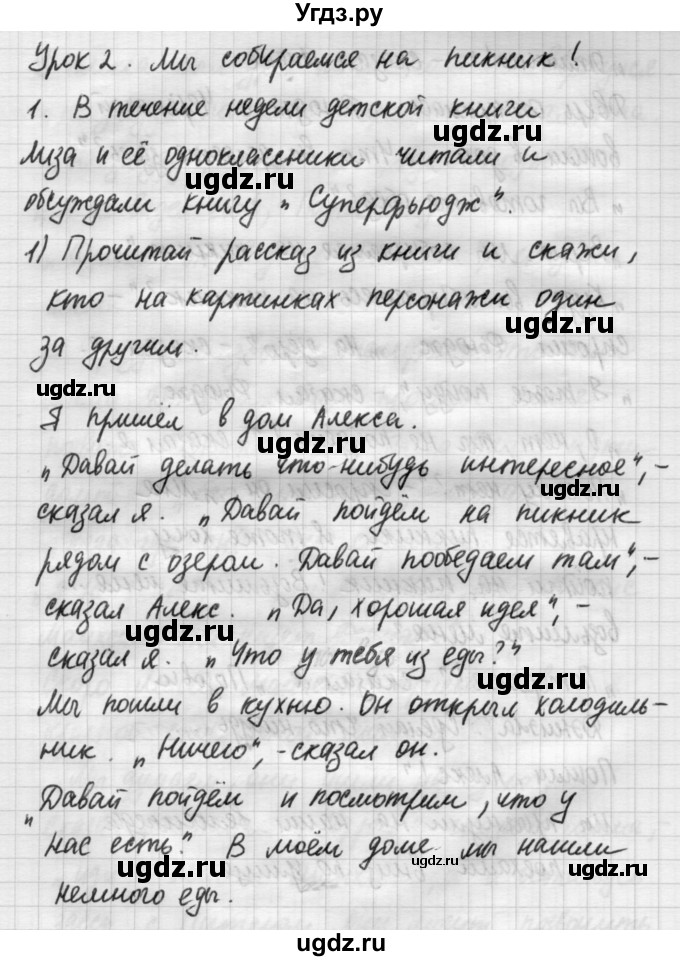 Угдз.ру
Урок 2. Мы собираемся на пикник!
1. В течение недели детской книги
Лиза и её одноклассники читали и
обсуждали книгу "Суперфьюдж".
1) Прочитай рассказ из книги и скажи,
кто на картинках персонажи один
за другим.
Я пришёл в дом Алекса.
"Давай делать что-нибудь интересное", -
сказал я. "Давай пойдём на пикник
рядом с озером. Давай пообедаем там", -
сказал Алекс. "Да, хорошая идея", -
сказал я. "Что у тебя из еды?"
Мы пошли в кухню. Он открыл холодиль-
ник. "Ничего", - сказал он.
"Давай пойдём и посмотрим, что у
нас есть?" В моём доме мы нашли
немного еды.
ugdz.ru